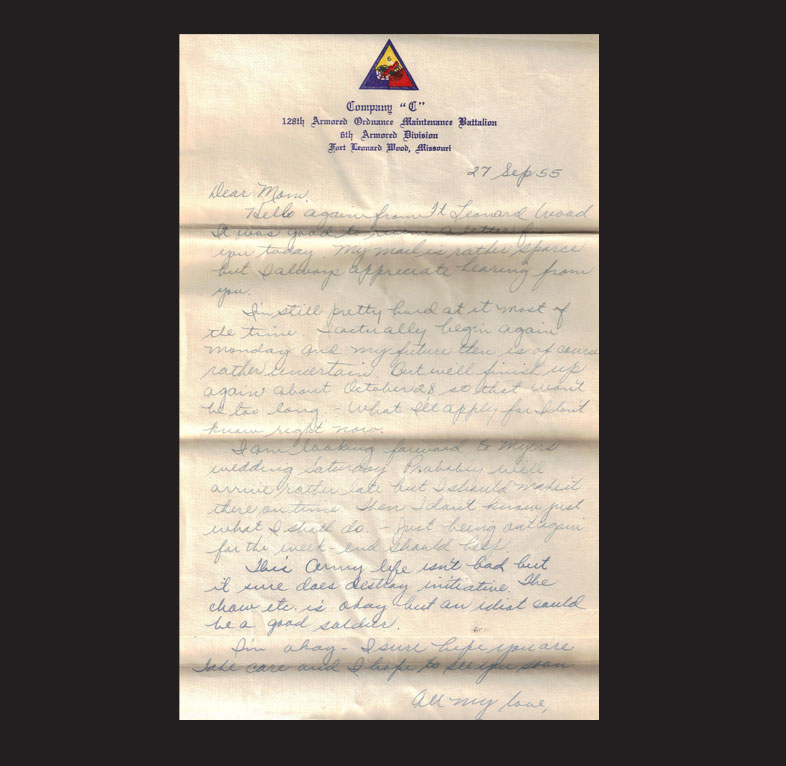 6
Company "C"
128th Armored Ordnance Maintenance Battalion
6th Armored Division
Fort Leonard Wood, Missouri
27 Sep 55
Dear Mom,
Hello again from Ft Leonard Wood
It was good to receive a letter from
you today. My mail is rather sparce
but I always appreciate hearing from
you.
I'm still pretty hard at it most of
the time. I actually begin again
Monday and my future then is of course
rather uncertain. But we'll finish up
again about October 28 so that won't
be too long. - What I'll apply for I don't
know right now.
I am looking forward to
wedding Saturday. Probably we'll
arrive rather late but I should make it
there on time. Then I don't know just
what I shall do. - just being out again
for the week-end should help.
This Army life isn't bad but
it sure does destroy initiative. The
chow etc. is okay but an idiot could
be a good soldier.
I'm okay - I sure hope you are
Take care and I hope to see you soon.
All my love,